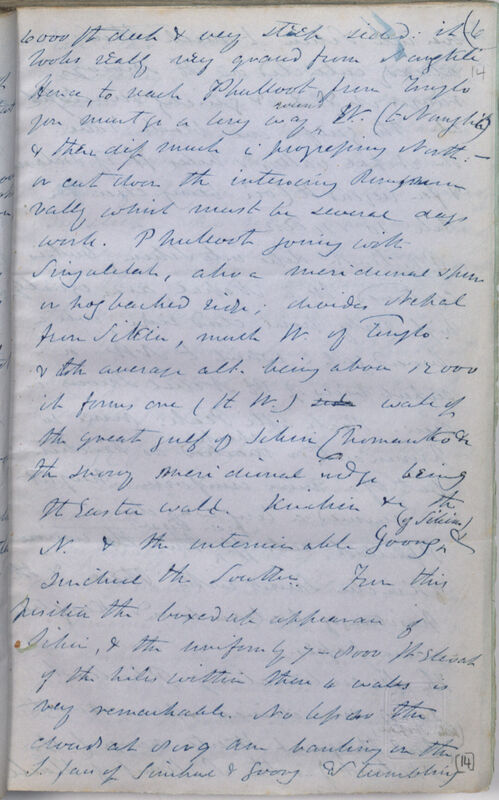 (16
6000 ft deep & very steep sided: it
looks really very grand from Nanghili
14
Hence, to reach Phulloot from Tonglo
you must go a long way round W. (to Nanghili)
& then dip much in progressing North: —
or cut down the intervening
vally which must be several days
work. Phulloot joining with
Singalelah, also a meridional spur
or hogbacked ridge; divides Nepal
from Sikkim, much W. of Tonglo
& its average alt. being above 12000
it forms one (the W.) side wall of
the great gulf of Sikim
the snowy meridional ridge being
the Easter wall. Kinchin & the
N. & the interminable Goong &
(of Sikim)
Sinchul the Southern. From this
position the boxed up appearance of
Sikim, & the uniformly 7-8000 ft elevation
of the hills within these 4 walls is
very remarkable. No less so the
clouds at 8 or 9 am banking on the
S. face of Sinchul & Goong & tumbling
(14)